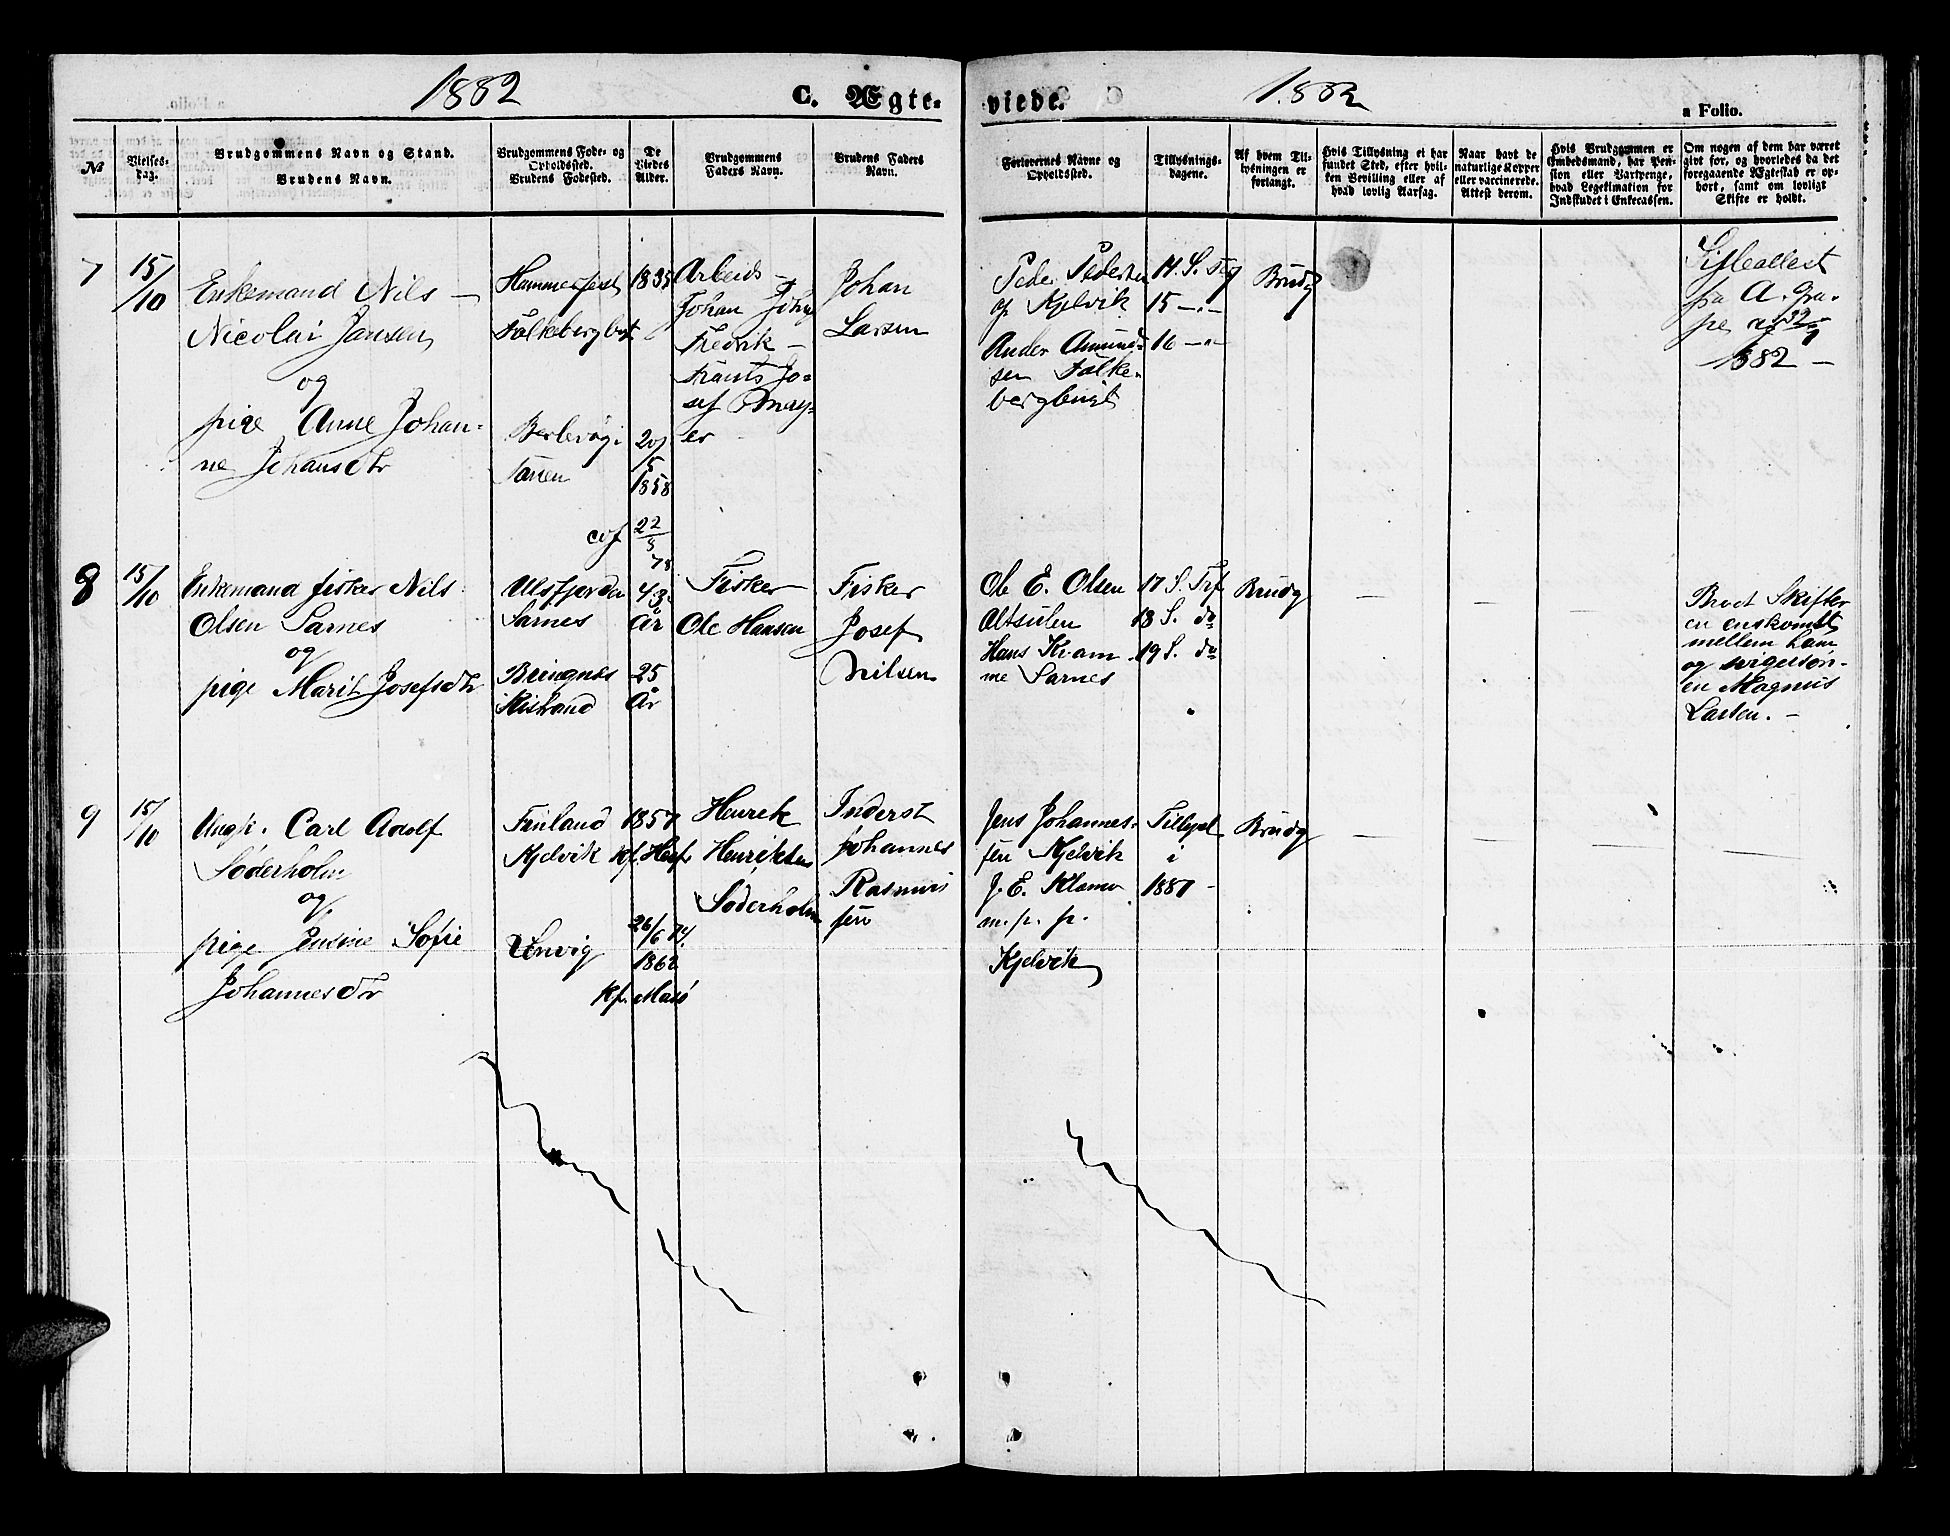 1882
C. Ægte-
viede.
1882
a Folio.
№
Vielses-
dag.
Brudgommens Navn og Stand.
Brudens Navn.
Brudgommens Føde- og
Opholdssted.
Brudens Fødested.
De
Viedes
Alder.
Brudgommens
Faders Navn.
Brudens Faders
Navn.
Forlovernes Navne og
Opholdssted.
Tillysnings-
dagene.
Af hvem Til-
lysningen er
forlangt.
Hvis Tillysning ei har
fundet Sted, efter hvil-
ken Bevilling eller af
hvad lovlig Aarsag.
Naar havt de
naturlige Kopper
eller vaccinerede.
Attest derom.
Hvis Brudgommen er
Embedsmand, har Pen-
sion eller Vartpenge,
hvad Legetimation for
Indskudet i Enkecassen.
Om nogen af dem har været
givt for, og hvorledes da det
foregaaende Ægteskab er op-
hørt, samt om lovligt
Skifte er holdt.
7
15/10
Enkemand Nils
Nicolai Jansen
og
pige Anne Johan-
ne Johansdtr
Hammerfest
Falkebergbugt
Berlevåg i
Tanen
1835
20/5
1858
cof 22/5 78
Arbeids
Johan
Fredrik
Frants Jo-
sef
er
Johan
Larsen
Peder Pedersen
og Kjelvik
Ander Amund-
sen Falke-
bergbugt
14. S. Trf
15 -"-
16 -"-
Brudg
fra A.
1882 -
8
15/10
Enkemand fisker Nils
Olsen Sarnes
og
pige Marit Josefsdtr
Ulsfjorden
Sarnes
Bringnes
Kistrand
43
år
25
År
Fisker
Ole Hansen
Fisker
Josef
Nilsen
Ole E. Olsen
Altsulen
Hans Kram
me Sarnes
17 S. Trf
18 S. do
19 S. do
Brudg
Brevet Skifter
en enskomst
mellem ham
og svigersøn-
en Magnus
Larsen. -
9
15/10
Ungk. Carl Adolf
Søderholm
og
pige Jensine Sofie
Johannesdtr
Finland
Kjelvik
Lenvig
1857
kf. Hmf
26/6 74.
1862
kf. Masö
Henrik
Henriksen
Søderholm
Inderst
Johannes
Rasmus
sen
Jens Johannes-
sen Kjelvik
J. E. Klamer
m. p. p.
Kjelvik
Tillyst
i
1881 -
Brudg